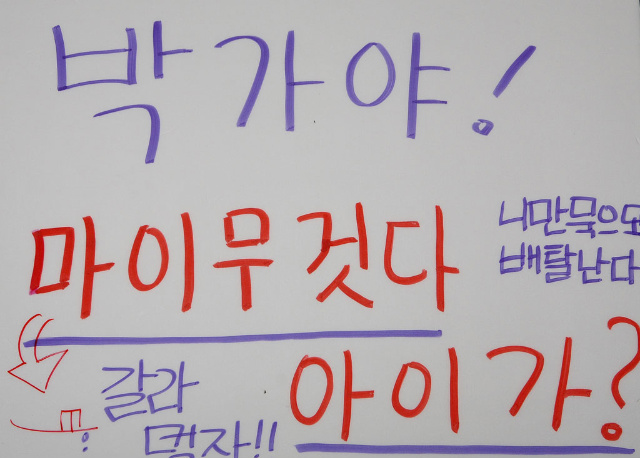 박가야!
마이무것다
니만묵으모
배탈난다
아이가?
갈라
먹자!!